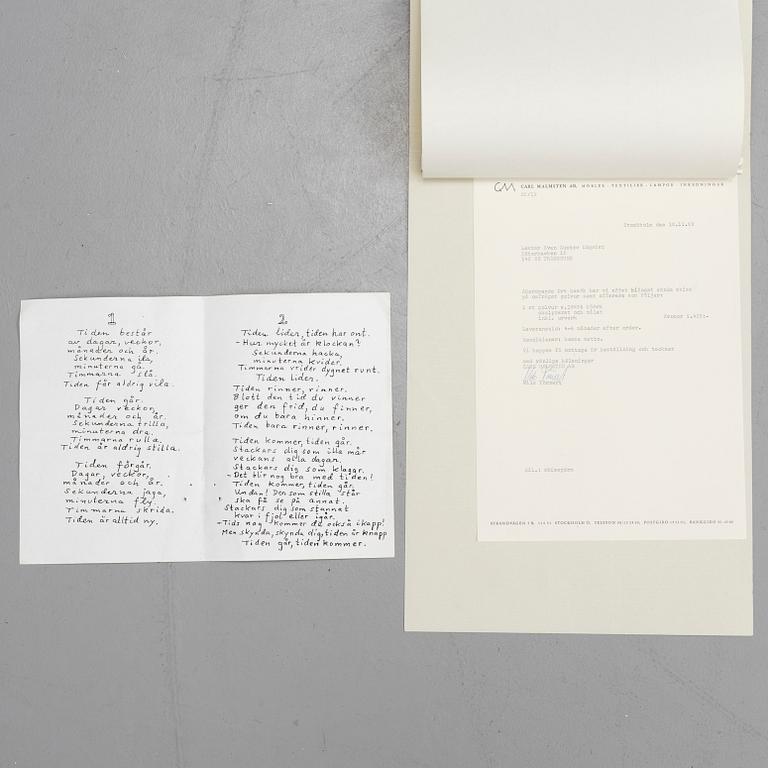 1
Tiden består
av dagar, veckor,
månader och år.
Sekunderna ila,
minuterna gå.
Timmarna slå.
Tiden får aldrig vila.
Tiden går.
Dagar, veckor,
månader och år.
Sekunderna trilla,
minuterna dra.
Timmarna rulla.
Tiden är aldrig stilla.
Tiden förgår.
Dagar, veckor,
månader och år.
Sekunderna jaga,
minuterna fly.
Timmarna skrida.
Tiden är alltid ny.
2
Tiden lider, tiden har ont.
- Hur mycket är klockan?
Sekunderna hacka,
minuterna kvider.
Timmarna vrider dygnet runt.
Tiden lider.
Tiden rinner, rinner.
Blott den tid du vinner
ger den frid, du finner,
om du bara hinner.
Tiden bara rinner, rinner.
Tiden kommer, tiden går.
Stackars dig som illa mår
veckans alla dagar.
Stackars dig som klagar.
- Det blir nog bra med tiden!
Tiden kommer, tiden går.
Undan! Den som stilla står
ska få se på annat.
Stackars dig som stannat
kvar i fjol eller igår.
- Tids nog kommer du också ikapp!
Men skynda, skynda dig, tiden är knapp
Tiden går, tiden kommer.
CM CARL MALMSTEN AB, MÖBLER · TEXTILIER · LAMPOR · INREDNINGAR
Stockholm den
Lektor Sven Gustav
Åberopande Ert besök har vi efter bifogat skiss
på golvur som
Kronor
Leveranstid: 4-6 månader efter order.
Betalning: netto.
Vi hoppas få mottaga Er beställning och tecknar
med vänliga hälsningar
CARL MALMSTEN AB
Nils
STRANDVÄGEN 5 B, STOCKHOLM Ö, TELEFON POSTGIRO BANKGIRO